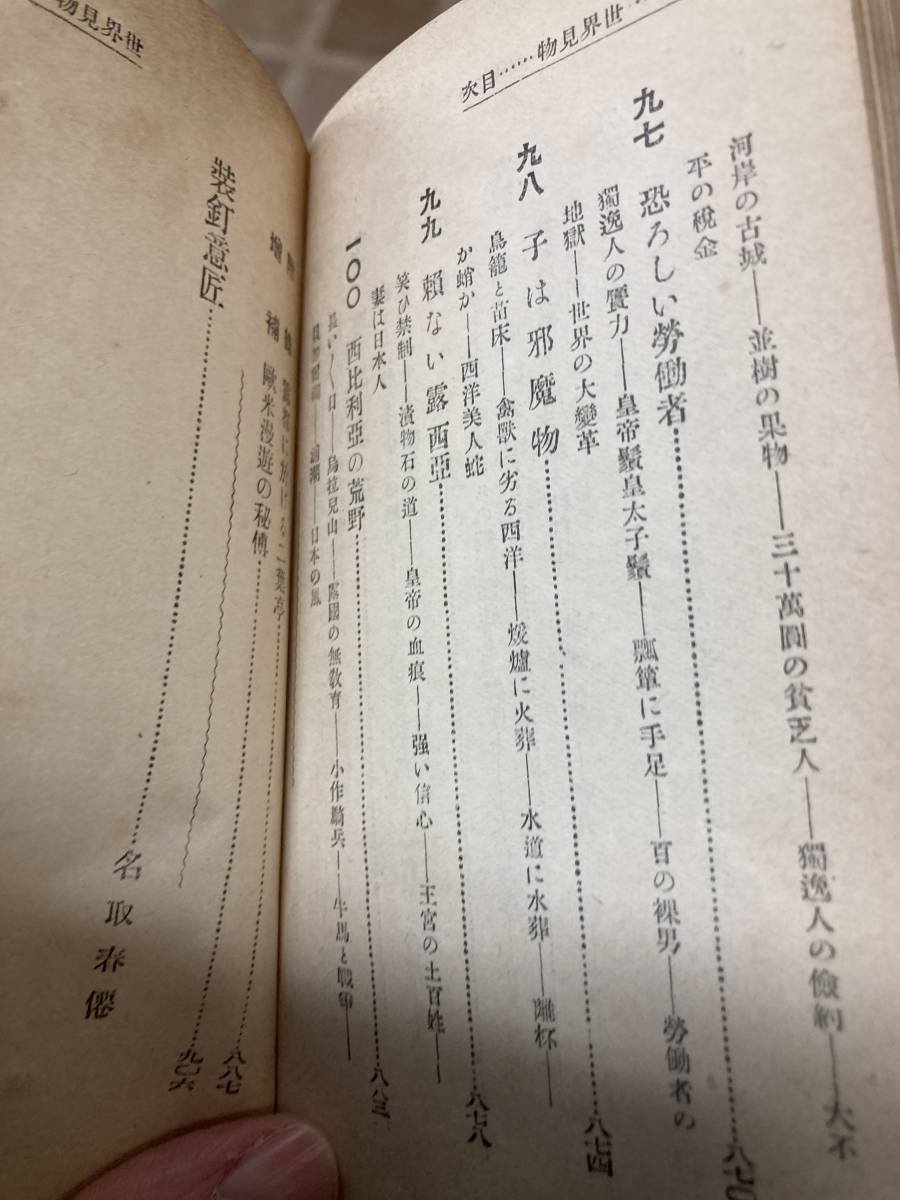 世界見物……目次
河岸の古城――並樹の果物――三十萬圓の貧乏人――獨逸人の儉約――大不
平の稅金
九七 恐ろしい勞働者……八七
獨逸人の實力――皇帝鬚皇太子鬚――瓢簞に手足――百の裸男――勞働者の
地獄――世界の大變革
九八 子は邪魔物……八七四
鳥籠と苗床――禽獸に劣る西洋――煖爐に火葬――水道に水葬――離杯――
か蛸か――西洋美人蛇
九九 賴ない露西亞……八七八
笑ひ禁制――漬物石の道――皇帝の血痕――强い信心――王宮の土百姓――
妻は日本人
一〇〇 西比利亞の荒野……八八三
長い〱日――烏拉兒山――露國の無敎育――小作騎兵――牛馬と戰爭――
日本の風
二葉亭……八八七
增補 歐米漫遊の秘傳……九〇六
裝釘意匠……名取春僊
世界見物